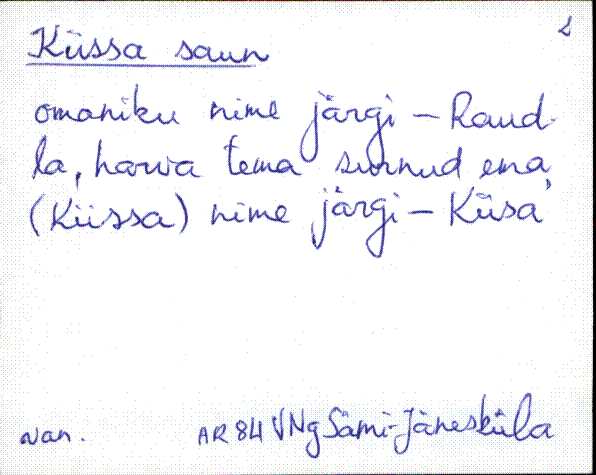 2
Küssa saun
omaniku nime järgi – Raud-
la, harva tema surnud ema
(Küssa) nime järgi – Küsa'
van. AR 84 VNg Sämi-Jänesküla